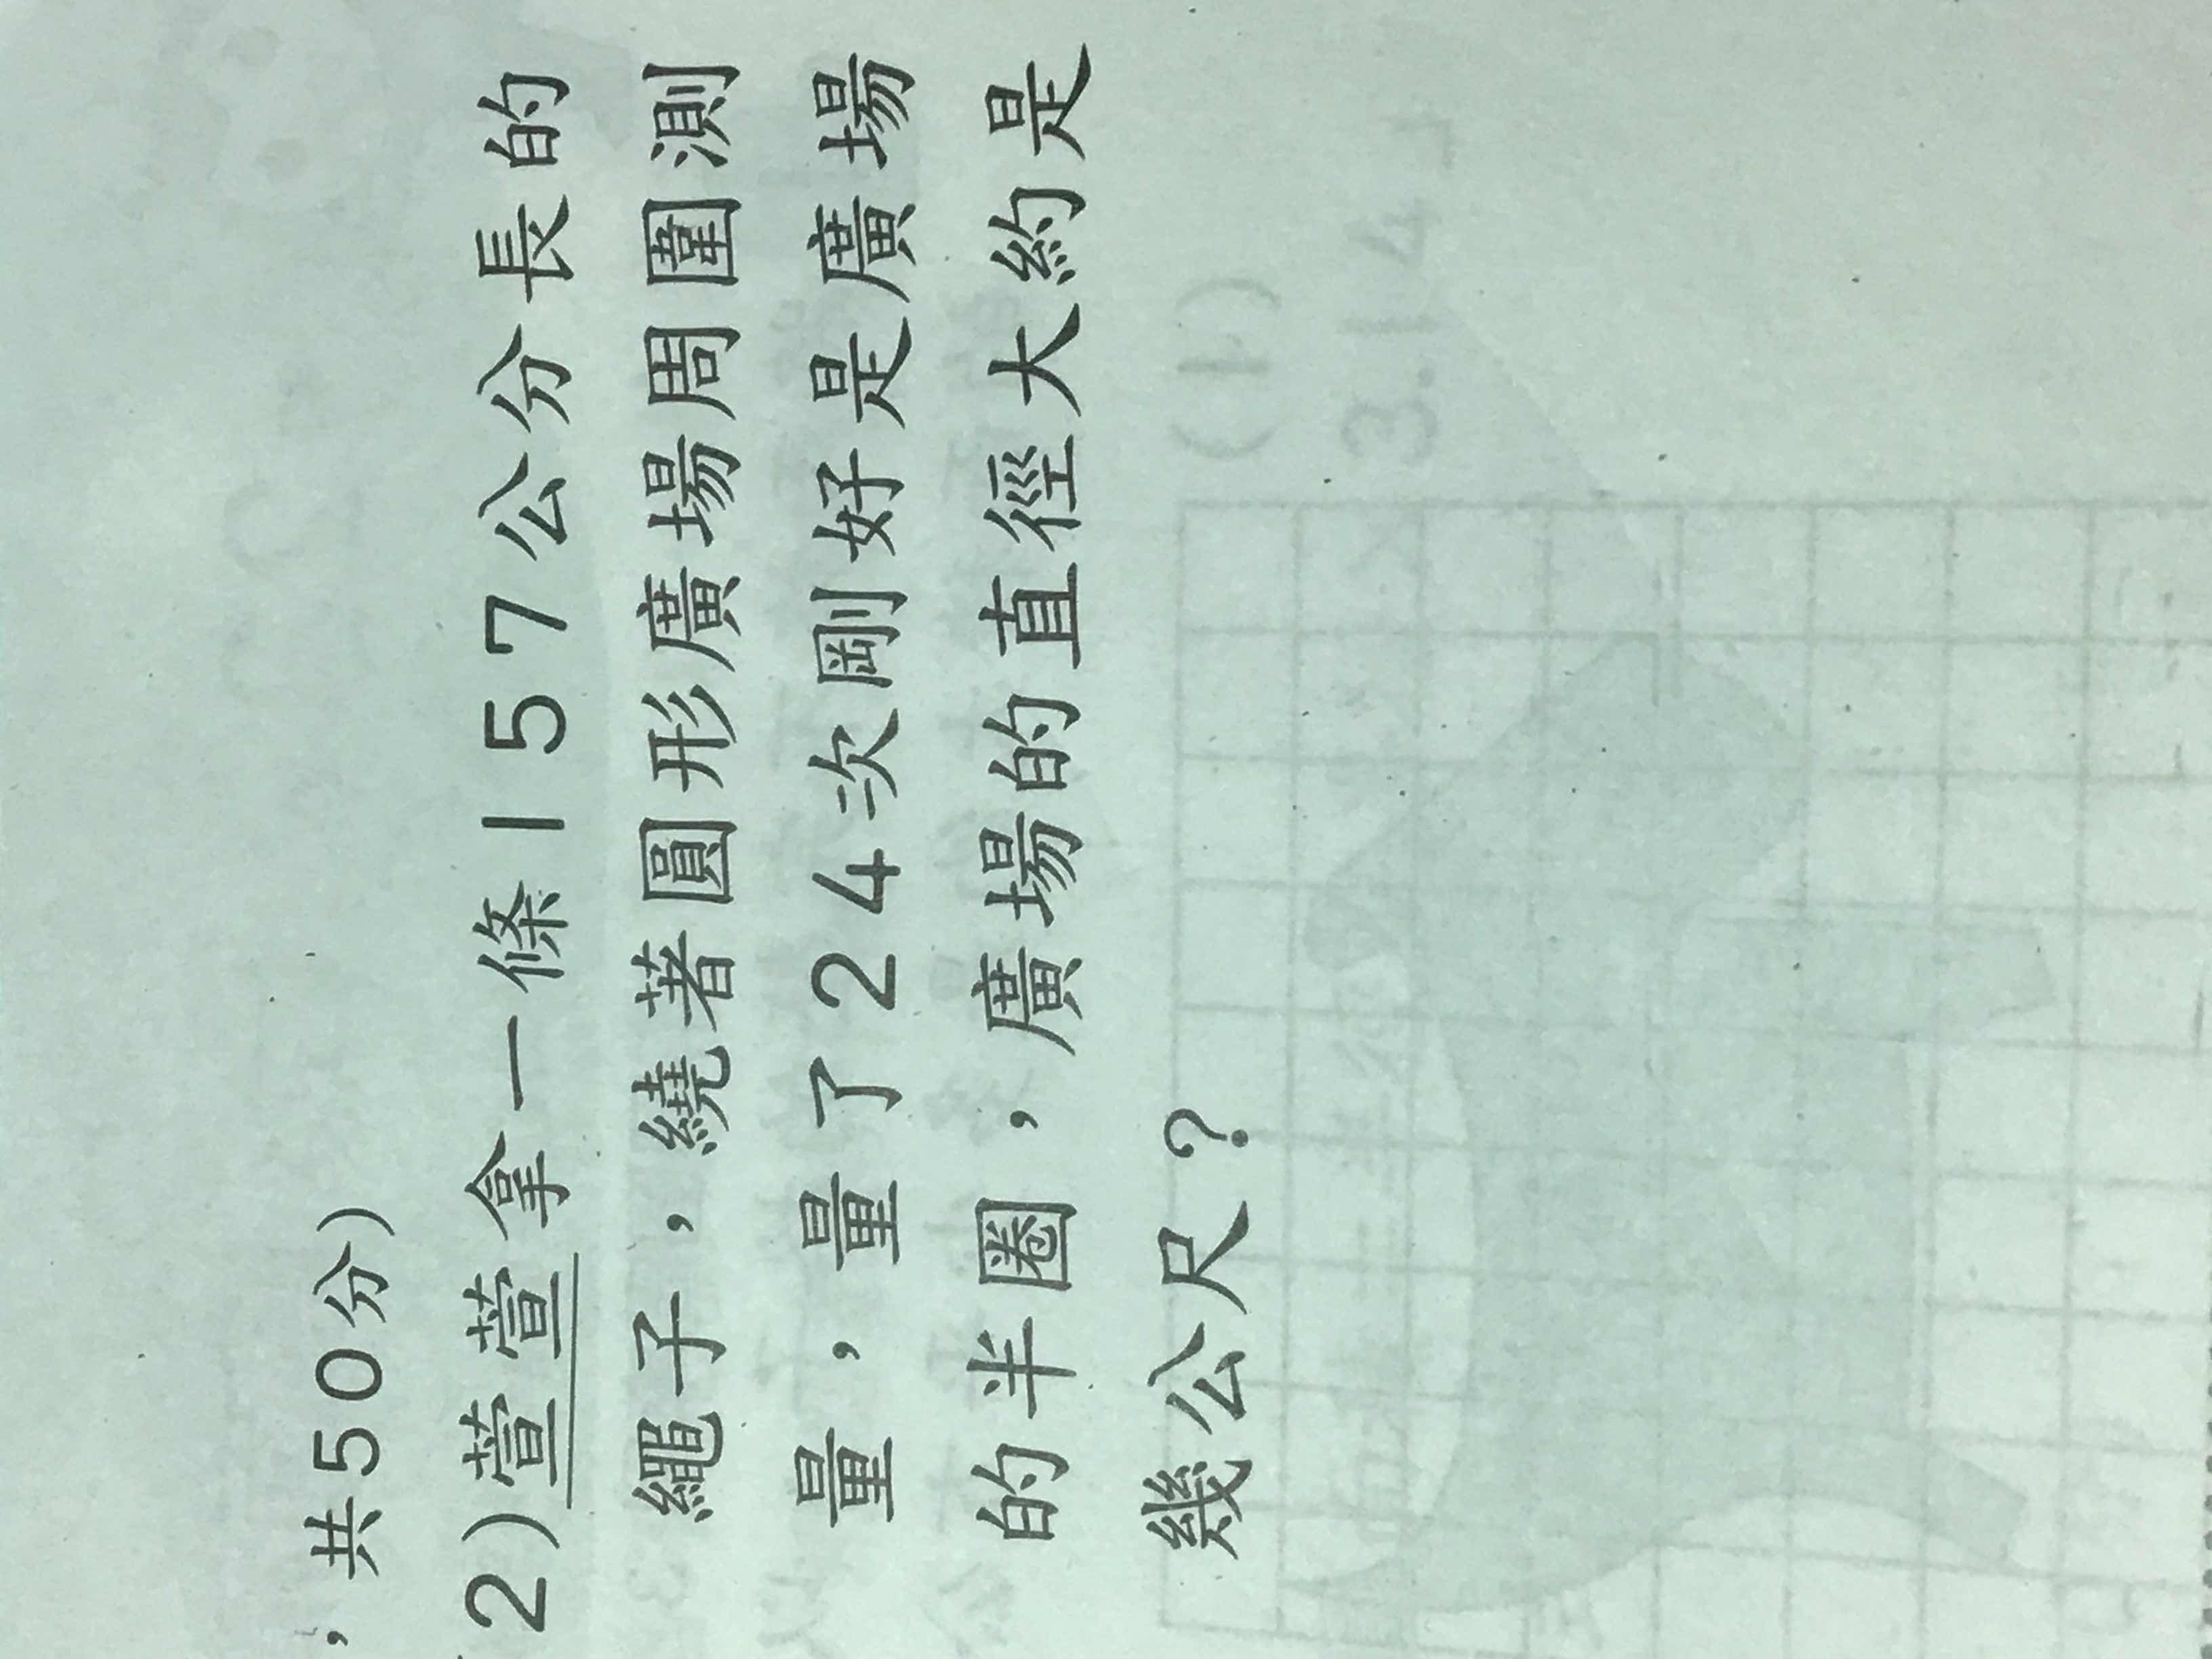 ，共50分）
2）萱萱拿一條157公分長的
繩子，繞著圓形廣場周圍測
量，量了24次剛好是廣場
的半圈，廣場的直徑大約是
幾公尺？